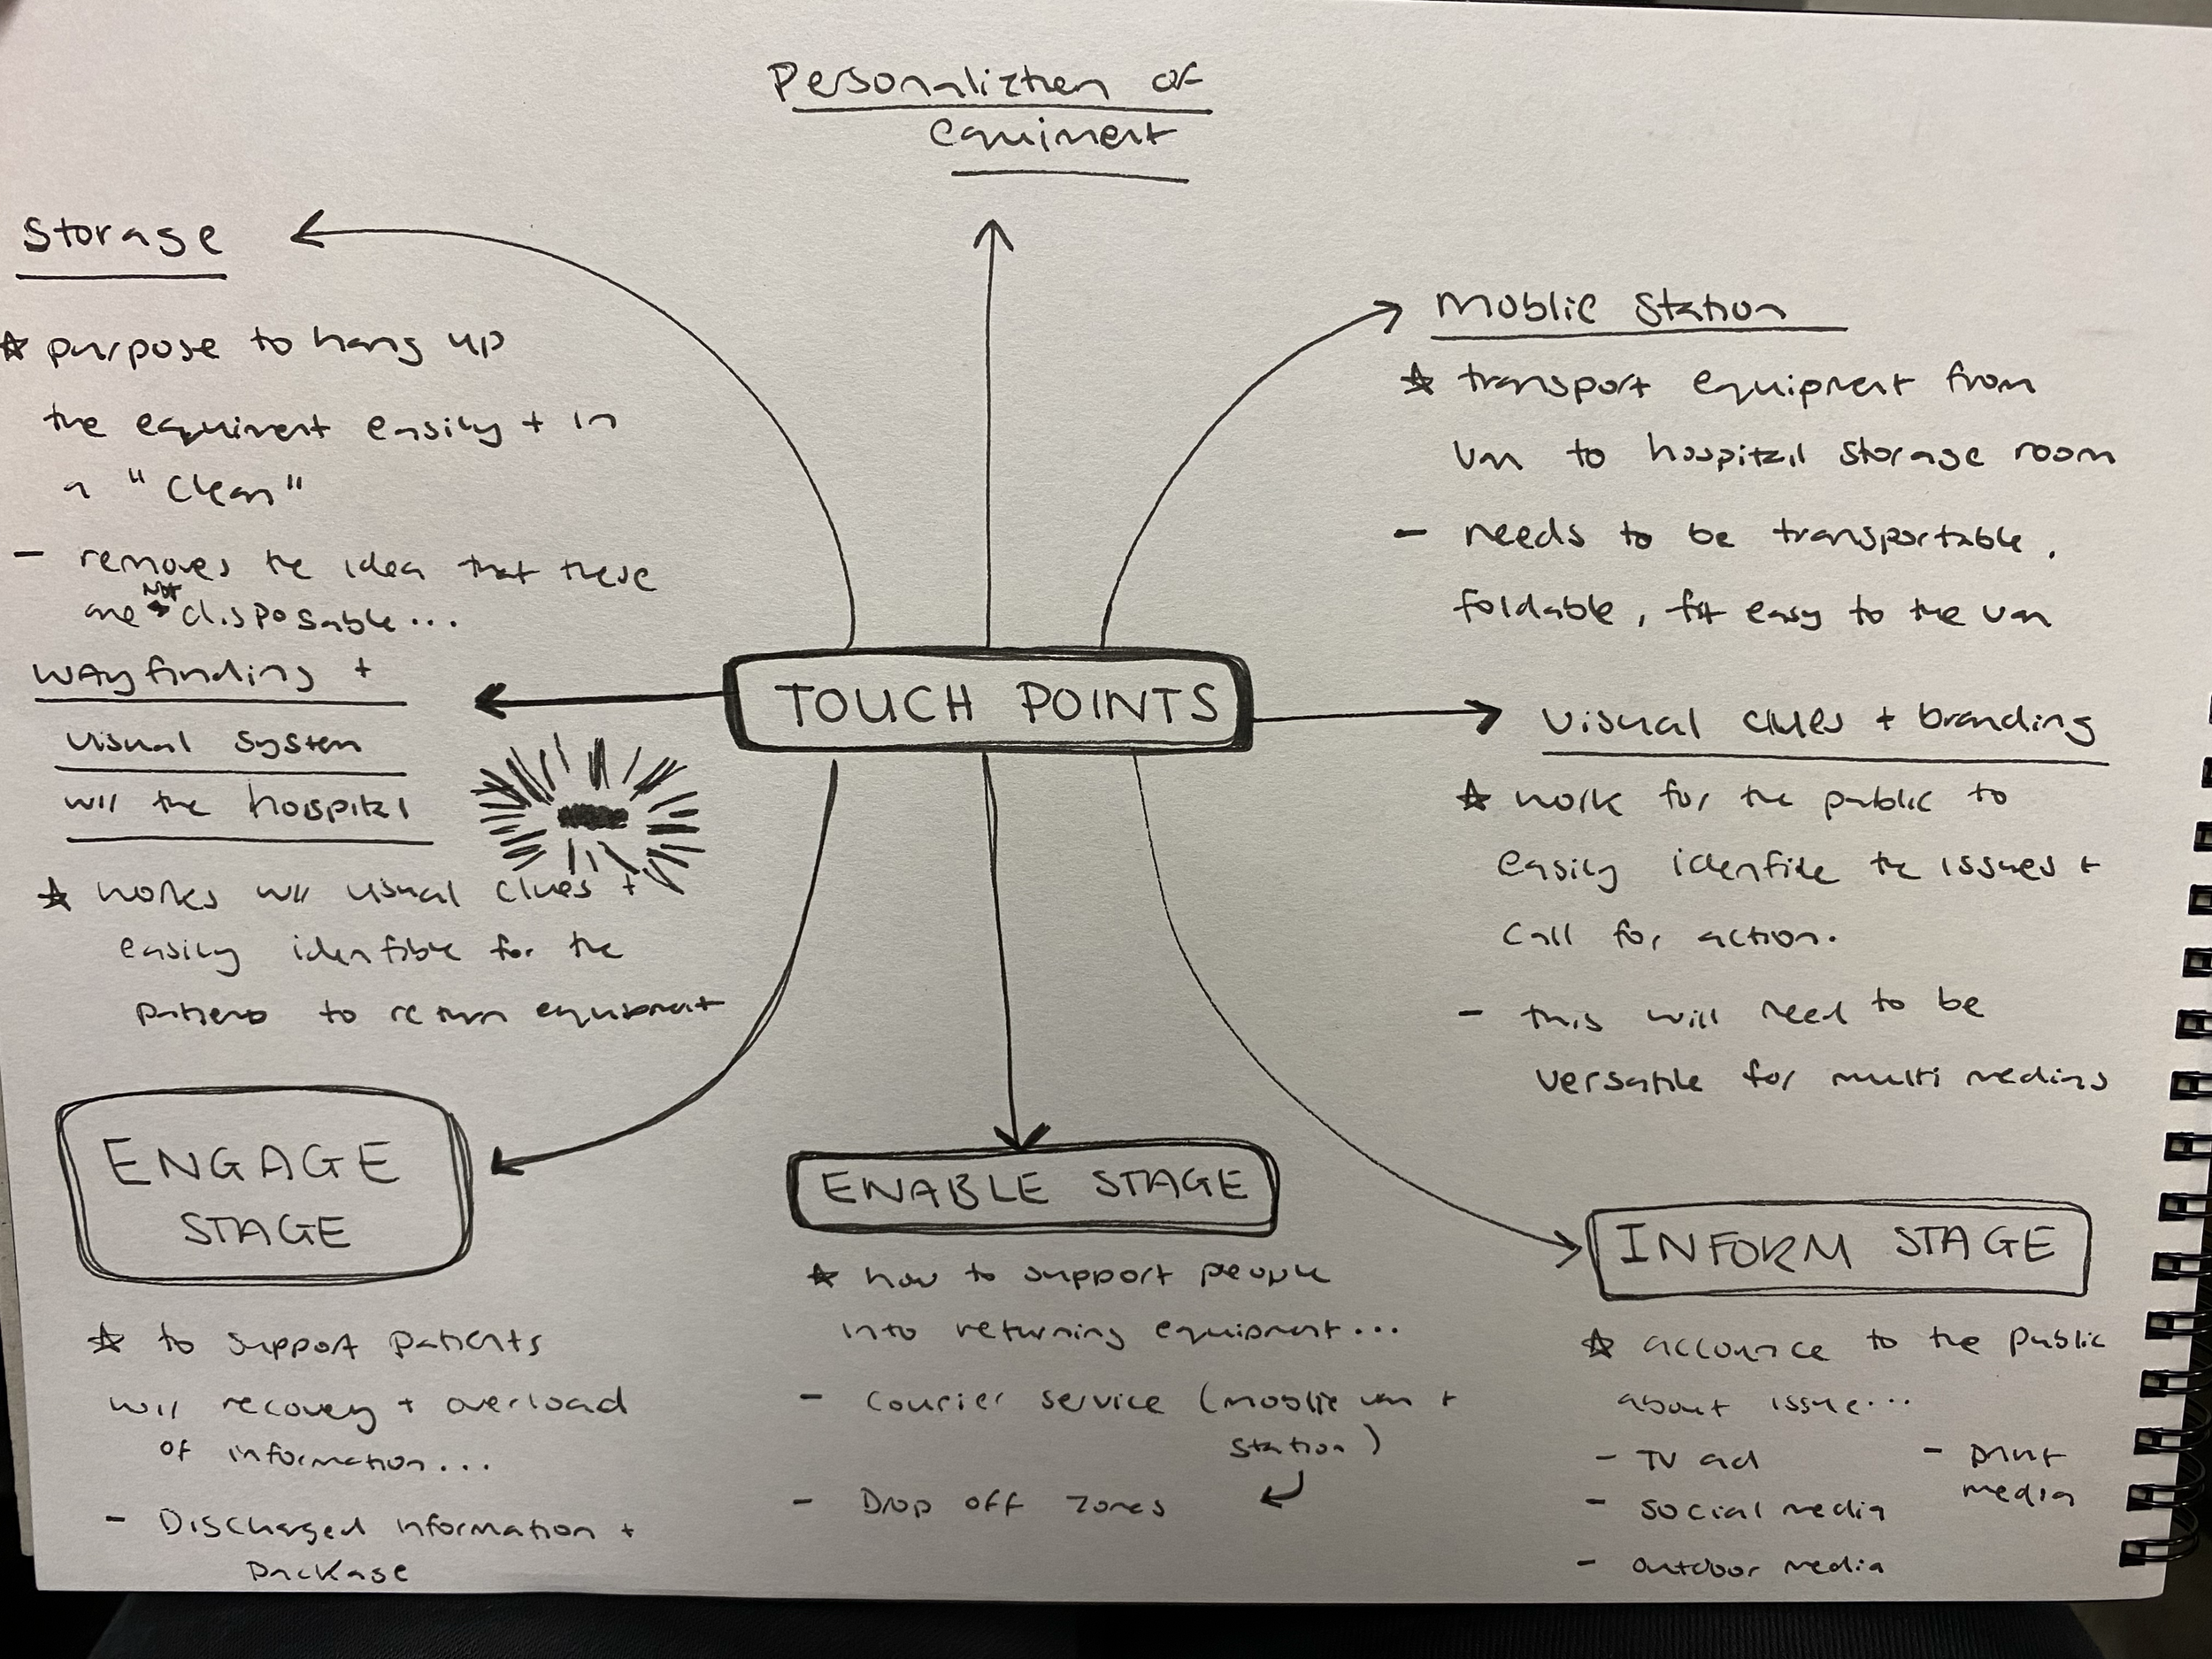 Personaliztien of
equiment
Storage
☆ purpose to hang up
the equiment easily + in
a "Clean"
- removes the idea that these
are not disposable...
wayfinding +
visual system
w/ the hospital
☆ works w/ visual clues +
easily identfible for the
patiens to return equipment
Moblie Station
☆ transport equipment from
van to hospital storage room
- needs to be transportable,
foldable, fit easy to the van
TOUCH POINTS
visual clues + branding
☆ work for the public to
easily identfile the issues +
Call for action.
- this will need to be
versatile for multi medias
ENGAGE
STAGE
☆ to support patients
w/ recovery + overload
of information...
- Discharged information +
package
ENABLE STAGE
☆ how to support people
into returning equipment...
- courier service (moblie van +
station)
- Drop off zones
INFORM STAGE
☆ to the public
about issue...
- TV ad
- social media
- outdoor media
- print
media